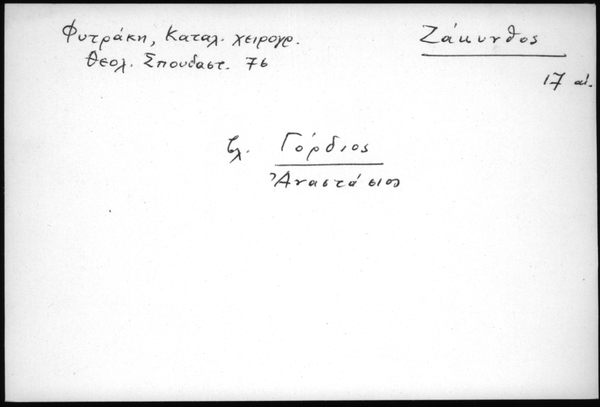 Φυτράκη, Καταλ. χειρογρ.
Θεολ. Σπουδαστ. 76
Ζάκυνθος
17 αἰ.
βλ. Γόρδιος
Ἀναστάσιος